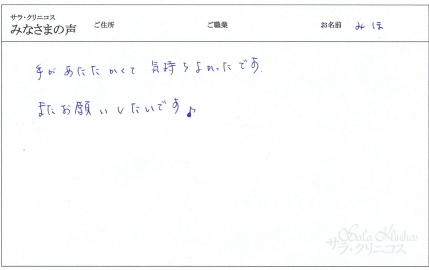 サラ・クリニコス
みなさまの声 ご住所 ご職業 お名前 みほ
手があたたかくて 気持ちよかったです.
またお願いしたいです♪
Sala Klinikos
サラ・クリニコス